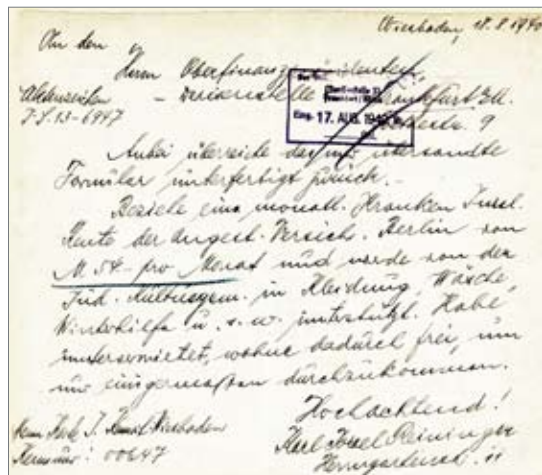 Wiesbaden, 18.8.1940
An den
Herrn Oberfinanzpräsidenten,
Aktenzeichen – Devisenstelle Frankfurt
J.S. 13-6947 9
Eing. 17. AUG. 1940
Anbei überreiche das mir übersandte
Formular unterfertigt zurück. –
Beziehe eine monatl. Kranken Invl.
Rente der Angest. Versich. Berlin von
M. 54.- pro Monat und werde von der
Jüd. Kultusgem. in Kleidung, Wäsche,
Winterhilfe u. s. w. unterstützt. Habe
untervermietet, wohne dadurch frei, um
nur einigermaßen durchzukommen.
Hochachtend!
Wiesbaden
Kennnr: 00647
Karl Israel Reininger
Herrngartenstr. 11